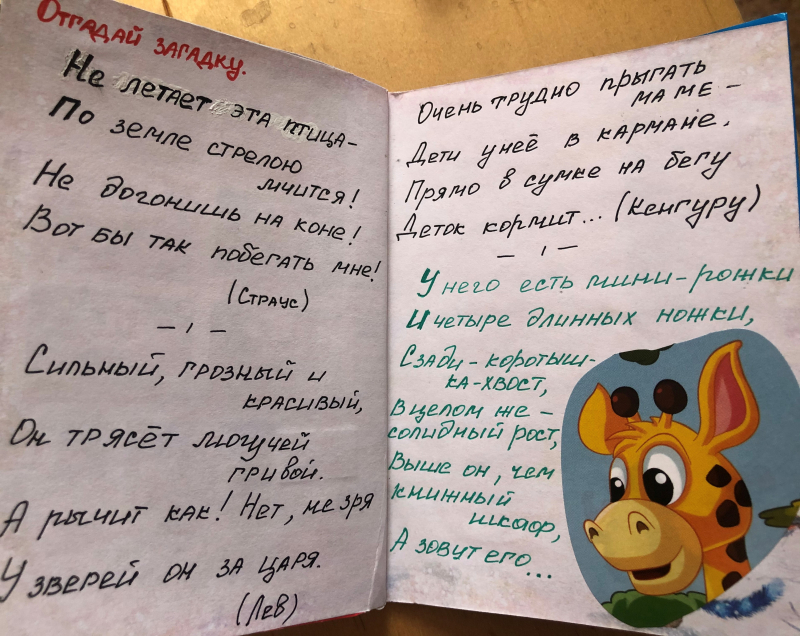 Отгадай загадку.
Не летает эта птица-
По земле стрелою
мчится!
Не догонишь на коне!
Вот бы так побегать мне!
(Страус)
— , —
Сильный, грозный и
красивый,
Он трясёт могучей
гривой.
А рычит как! Нет, не зря
У зверей он за царя.
(Лев)
Очень трудно прыгать
маме —
Дети у неё в кармане.
Прямо в сумке на бегу
Деток кормит... (Кенгуру)
— , —
У него есть мини-рожки
И четыре длинных ножки,
Сзади - коротыш-
ка-хвост,
В целом же —
солидный рост,
Выше он, чем
книжный
шкаф,
А зовут его...